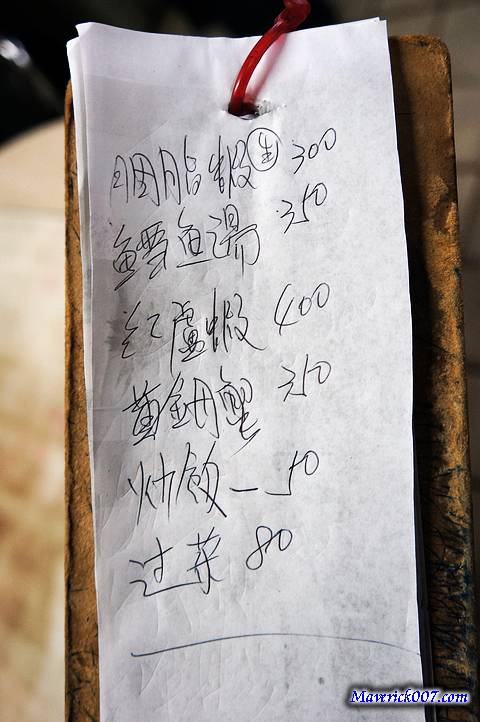 胭脂蝦 生 300
鱈魚湯 350
红盧蝦 400
黄 蟹 350
炒飯一 50
过菜 80
Maverick007.com